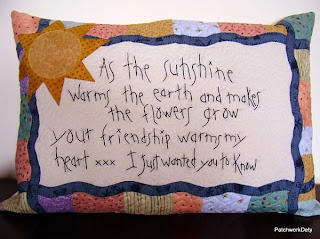 As the sunshine
warms the earth and makes
the flowers grow
your friendship warms my
heart xxx I just wanted you to know
PatchworkDety